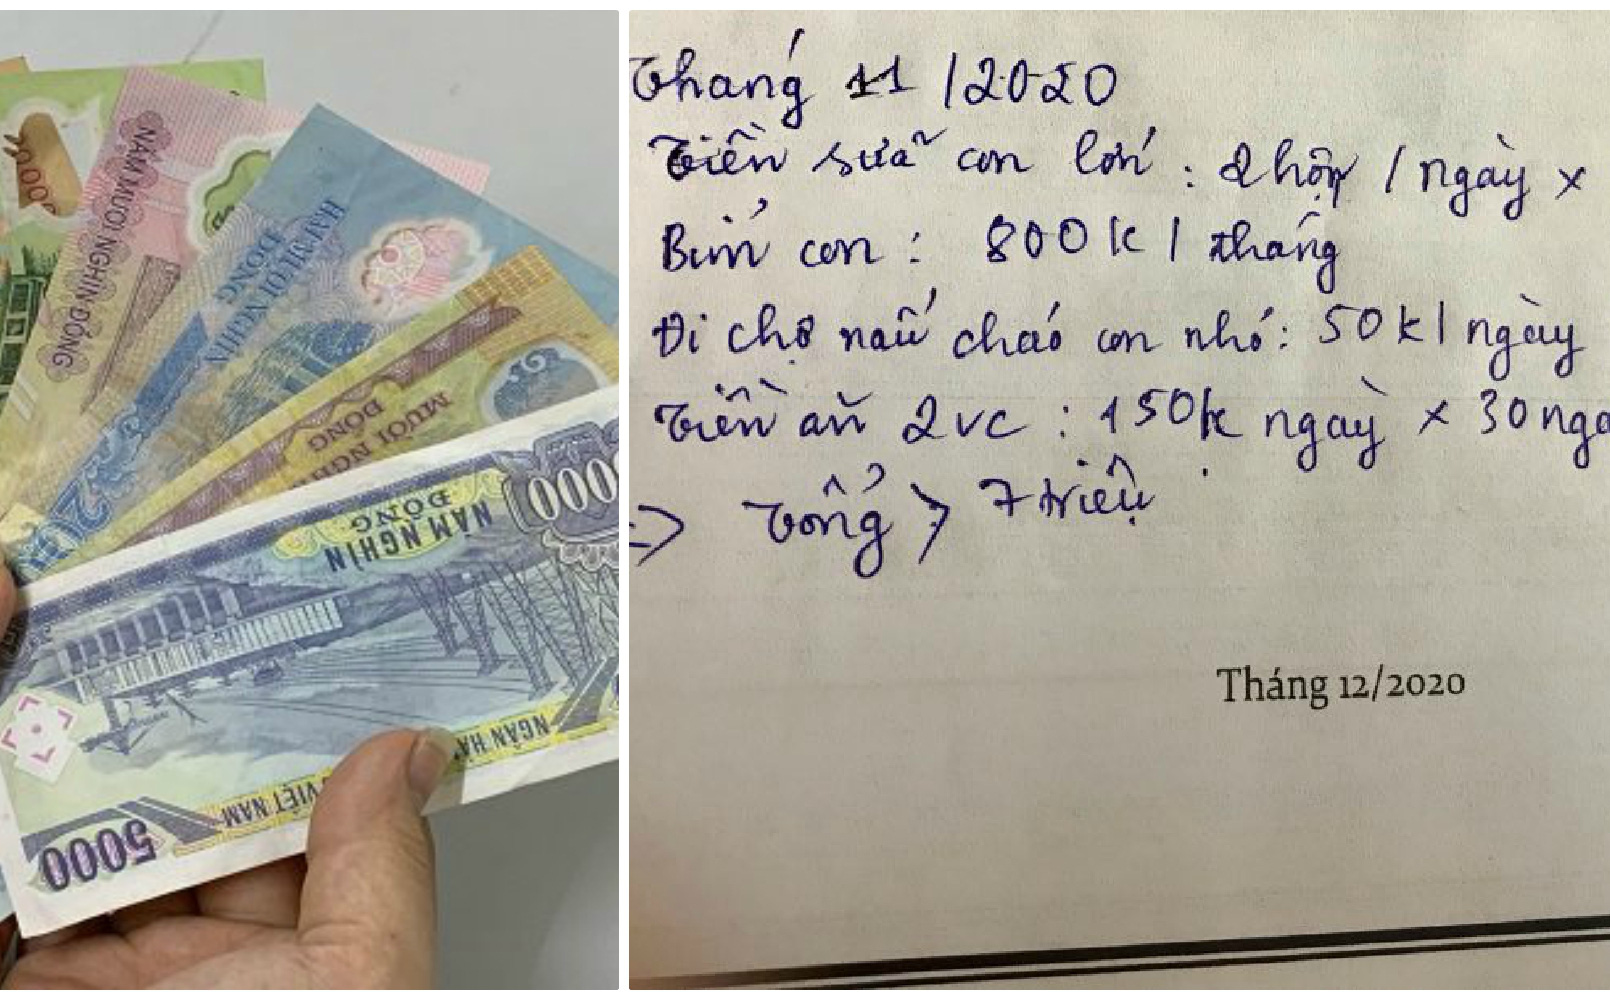 000
NĂM MƯƠI NGHÌN ĐỒNG
HAI MƯƠI NGHÌN
ĐỒNG
20
MƯỜI NGHÌ
ĐỒNG
000
NĂM NGHÌN
ĐỒNG
NGÂN HÀ
VIỆT NAM
5000
Tháng 11/2020
Tiền sữa con lớn: 2 hộp / ngày x
Bỉm con: 800k / tháng
Đi chợ nấu cháo con nhỏ: 50k / ngày
Tiền ăn 2vc: 150k ngày x 30 ngà
=> Tổng > 7 triệu
Tháng 12/2020